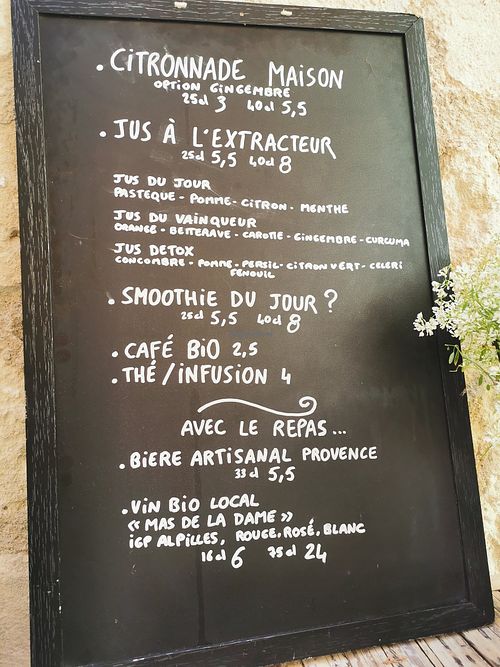 . CITRONNADE MAISON
OPTION GINGEMBRE
25cl 3 40cl 5,5
. JUS À L'EXTRACTEUR
25cl 5,5 40cl 8
JUS DU JOUR
PASTEQUE - POMME - CITRON - MENTHE
JUS DU VAINQUEUR
ORANGE - BETTERAVE - CAROTTE - GINGEMBRE - CURCUMA
JUS DETOX
CONCOMBRE - POMME - PERSIL - CITRON VERT - CELERI
FENOUIL
. SMOOTHIE DU JOUR ?
25cl 5,5 40cl 8
. CAFÉ BIO 2,5
. THÉ / INFUSION 4
AVEC LE REPAS...
. BIERE ARTISANAL PROVENCE
33cl 5,5
. VIN BIO LOCAL
« MAS DE LA DAME »
IGP ALPILLES, ROUGE, ROSÉ, BLANC
16cl 6 75cl 24